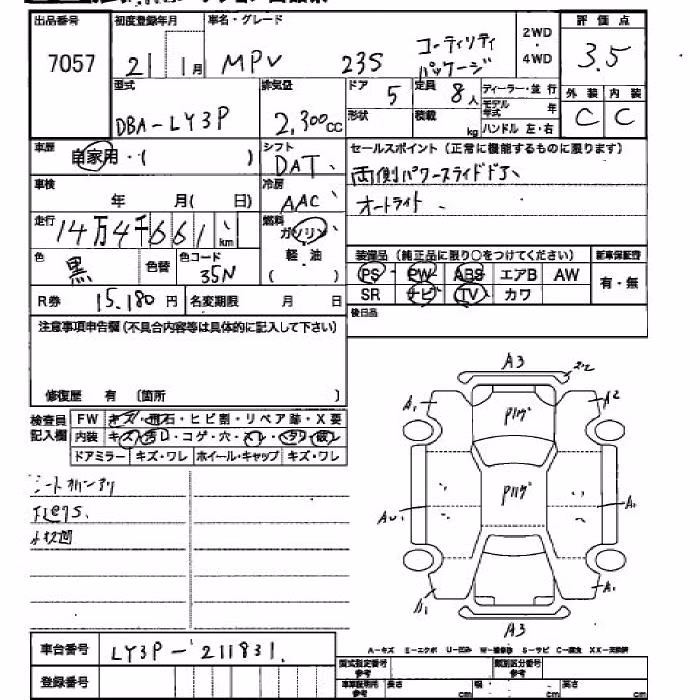 出品番号 初度登録年月 車名・グレード 2WD・4WD 評価点
7057 21 1月 MPV 23S コーティリティパッケージ 3.5
型式 排気量 ドア 5 定員 8人 ディーラー・並行 外装 内装
DBA-LY3P 2,300cc 形状 積載 kg モデル年式 年 C C
ハンドル 左・右
車歴 自家用・( ) シフト DAT セールスポイント(正常に機能するものに限ります)
車検 年 月( 日) 冷房 AAC 両側パワースライドドア、
オートライト、
走行 14万4千661km 燃料 ガソリン 軽・油 ( )
色 黒 色替 色コード 35N 装備品(純正品に限り○をつけてください) 新車保証書
PS PW ABS エアB AW 有・無
R券 15,180円 名変期限 月 日 SR ナビ TV カワ
注意事項申告欄(不具合内容等は具体的に記入して下さい) 後日品
修復歴 有 〔箇所 〕
検査員記入欄 FW キズ・飛石・ヒビ割・リペア跡・X要
内装 キズ・汚レ・コゲ・穴・
ドアミラー キズ・ワレ ホイール・キャップ キズ・ワレ
A3
A1 A2
A1
A1 A1
A3
A-キズ E-エクボ U-凹み W-補修跡 S-サビ C-腐食 XX-交換済
車台番号 LY3P-211831
登録番号
型式指定番号 参考 類別区分番号 参考
車庫証明用 参考 長さ cm 幅 cm 高さ cm